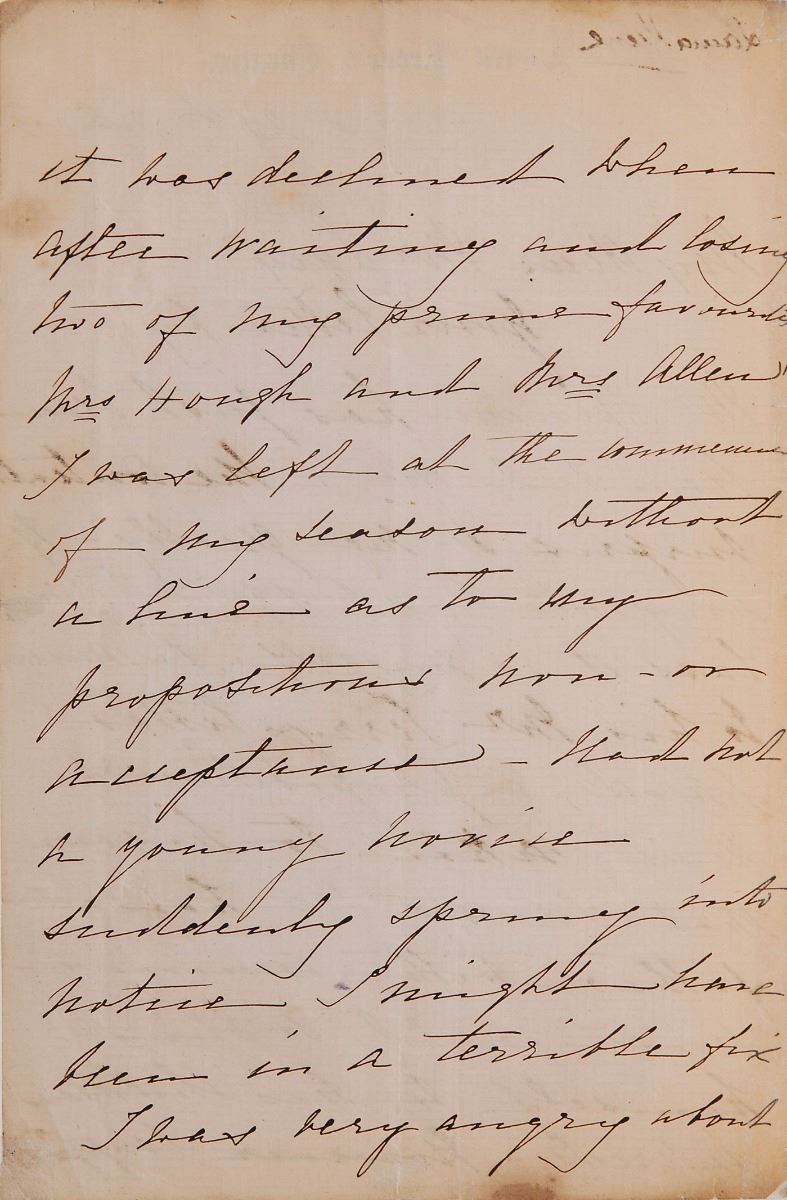 it was declined when
after waiting and losing
two of my prime favourites
Mrs Hough and Mrs Allen
I was left at the
of my season without
a line as to my
propositions non - or
acceptance - Had not
a young novice
suddenly sprung into
notice I might have
been in a terrible fix
I was very angry about